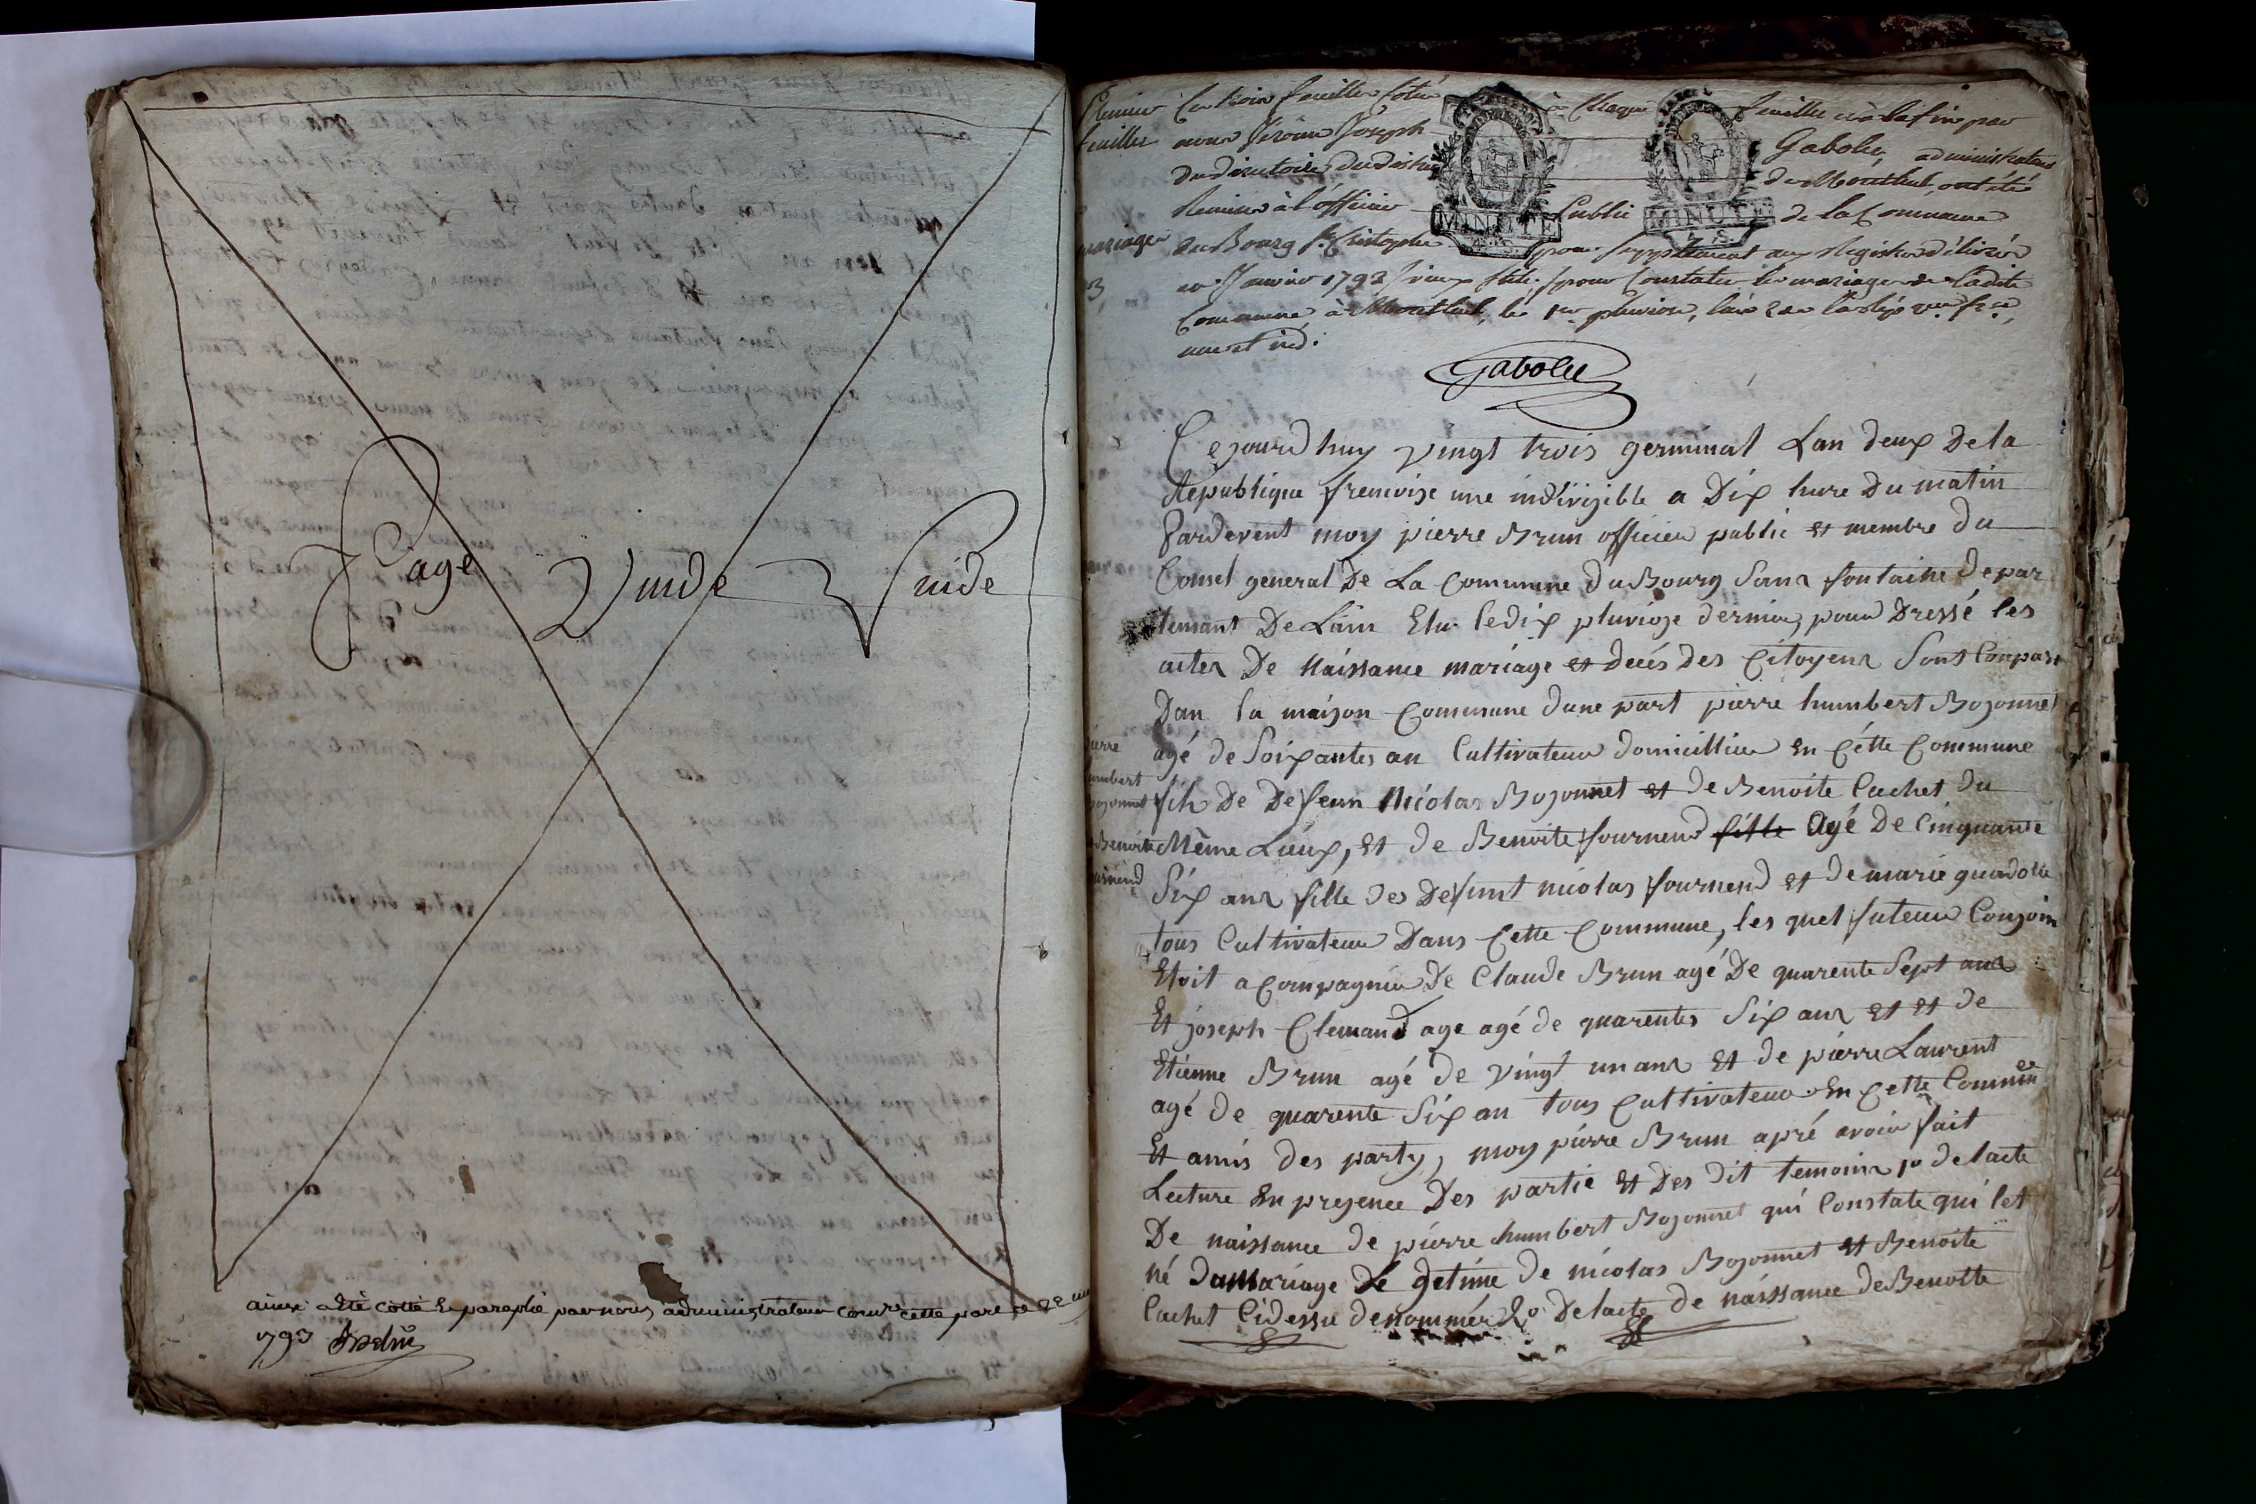 Page Vuide Vuide
ainsi a Eté cotté Et paraphé par nous administrateur cette page
1793
Premier Les trois feuilles Cotés à Chaque feuille et à la fin par
feuillet nous Jérôme Joseph Gabolec, administrateur
du directoire du district de Montluel, ont été
Remise à l'officier Public de la Commune
MINUTE MINUTE
mariages du Bourg St Cristophe pour supplément aux Registres délivrés
en Janvier 1793 vieux stile, pour Constater les mariages de ladite
Commune à Montluel, le 1er pluviose, l'an 2 de
une et ind.
Gabolec
Cejourd huy vingt trois germinal Lan deux De la
Republique frencoise une indivizible a Dix hure Du matin
Pardevent moy pierre Brun officier public et membre du
Consel general De La Commune Du Bourg Sans fontaine Depar
temant De Lain Elu le dix pluvioze dernier, pour Dressé les
actes De Naissance mariage et decés des Citoyens Sont Conpart
Dan la maizon Commune dune part pierre humbert Bozonnet
agé de Soixantes an Cultivateur domicillier En Cétte Commune
pierre
humbert
bozonnet
fils De Defeun Nicolas Bozonnet et de Benoite Cachet du
et Benoite Même Lieux, et de Benoite fournend fille Agé De Cinquante
fournend
Six ans fille des Defunt nicolas fournend et de marie
tous Cultivateur Dans Cette Commune, les quel futeur Conjoin
Etoit a Compagnier De Claude Brun agé De quarente Sept ans
Et joseph Clemand age agé de quarentes Six ans et et de
Etienne Brun agé de vingt un ans Et de pierre Laurent
agé de quarente Six an tous Cultivateur En Cette Commune
Et amis des party, moy pierre Brun apré avoir fait
Lecture En prezence Des partie Et Des Dit temoins 1o de lacte
De naissance de pierre humbert Bozonnet qui Constate qui let
né du Mariage Le getime De nicolas Bozonnet et Benoite
Cachet Cidessu denommér 2o De lacte de naissance de Benoitte